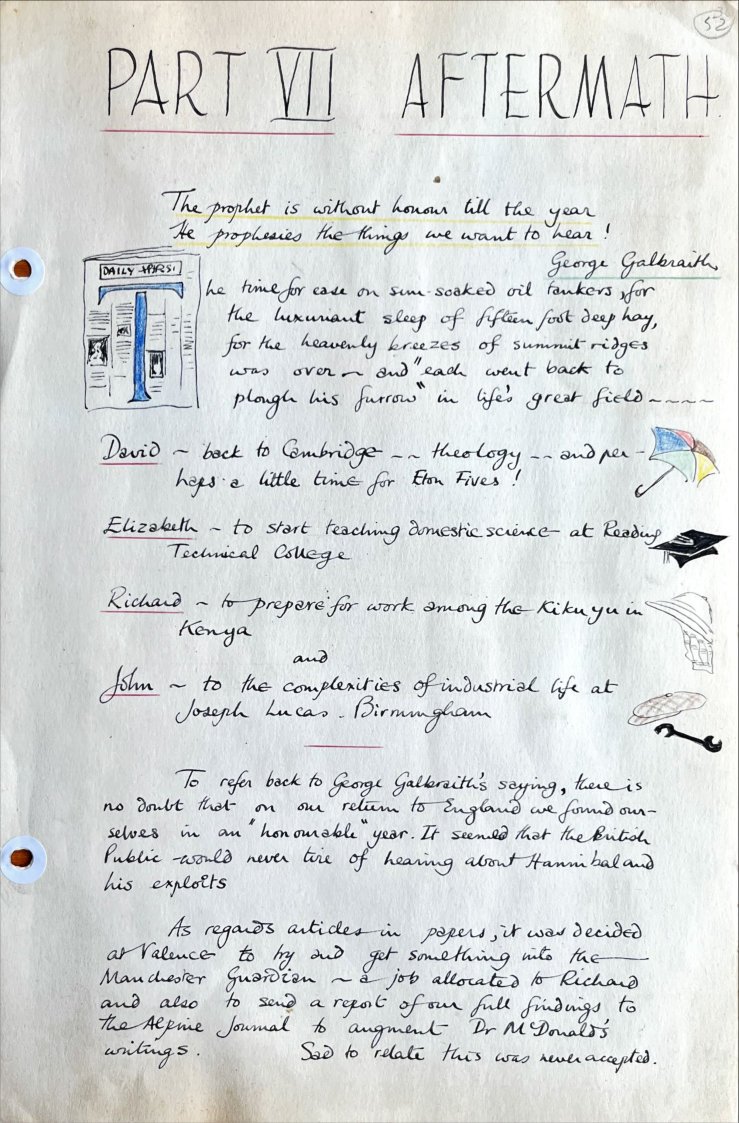 52
PART VII AFTERMATH.
The prophet is without honour till the year
He prophesies the things we want to hear!
George Galbraith
DAILY
The time for ease on sun-soaked oil tankers, for
the luxuriant sleep of fifteen foot deep hay,
for the heavenly breezes of summit ridges
was over ~ and "each went back to
plough his furrow" in life's great field ~~~~
David ~ back to Cambridge ~~ theology ~~ and per-
haps a little time for Eton Fives!
Elizabeth ~ to start teaching domestic science at Reading
Technical College
Richard ~ to prepare for work among the Kikuyu in
Kenya
and
John ~ to the complexities of industrial life at
Joseph Lucas. Birmingham
To refer back to George Galbraith's saying, there is
no doubt that on our return to England we found our-
selves in an "honourable" year. It seemed that the British
Public would never tire of hearing about Hannibal and
his exploits
As regards articles in papers, it was decided
at Valence to try and get something into the
Manchester Guardian ~ a job allocated to Richard
and also to send a report of our full findings to
the Alpine Journal to augment Dr McDonald's
writings. Sad to relate this was never accepted.